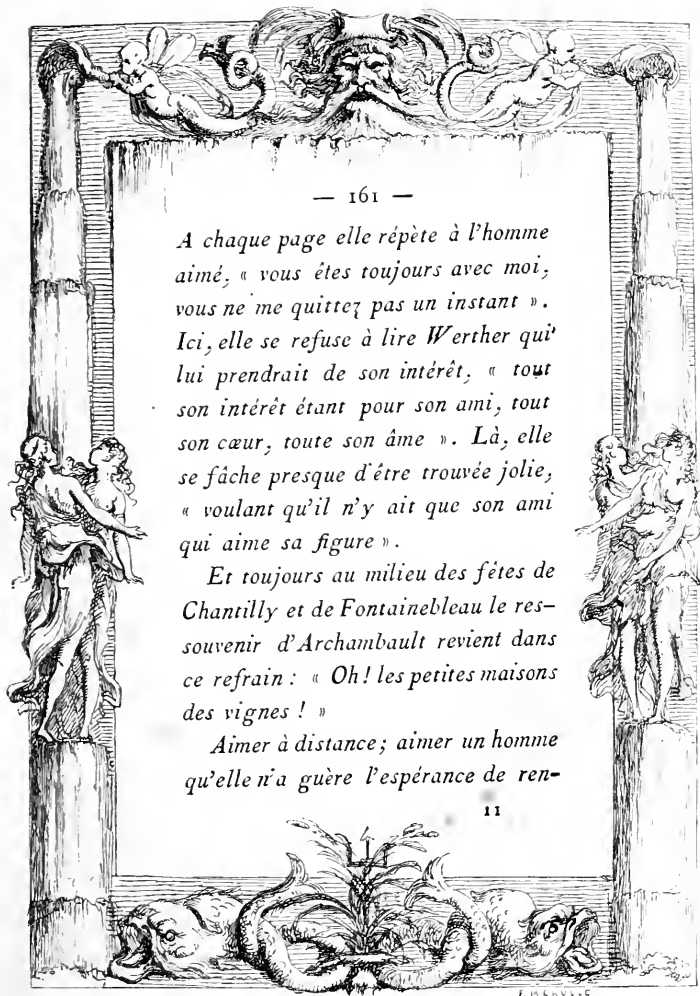 — 161 —
A chaque page elle répète à l'homme
aimé, « vous êtes toujours avec moi,
vous ne me quittez pas un instant ».
Ici, elle se refuse à lire Werther qui
lui prendrait de son intérêt, « tout
son intérêt étant pour son ami, tout
son cœur, toute son âme ». Là, elle
se fâche presque d'être trouvée jolie,
« voulant qu'il n'y ait que son ami
qui aime sa figure ».
Et toujours au milieu des fêtes de
Chantilly et de Fontainebleau le res-
souvenir d'Archambault revient dans
ce refrain : « Oh! les petites maisons
des vignes ! »
Aimer à distance; aimer un homme
qu'elle n'a guère l'espérance de ren-
11